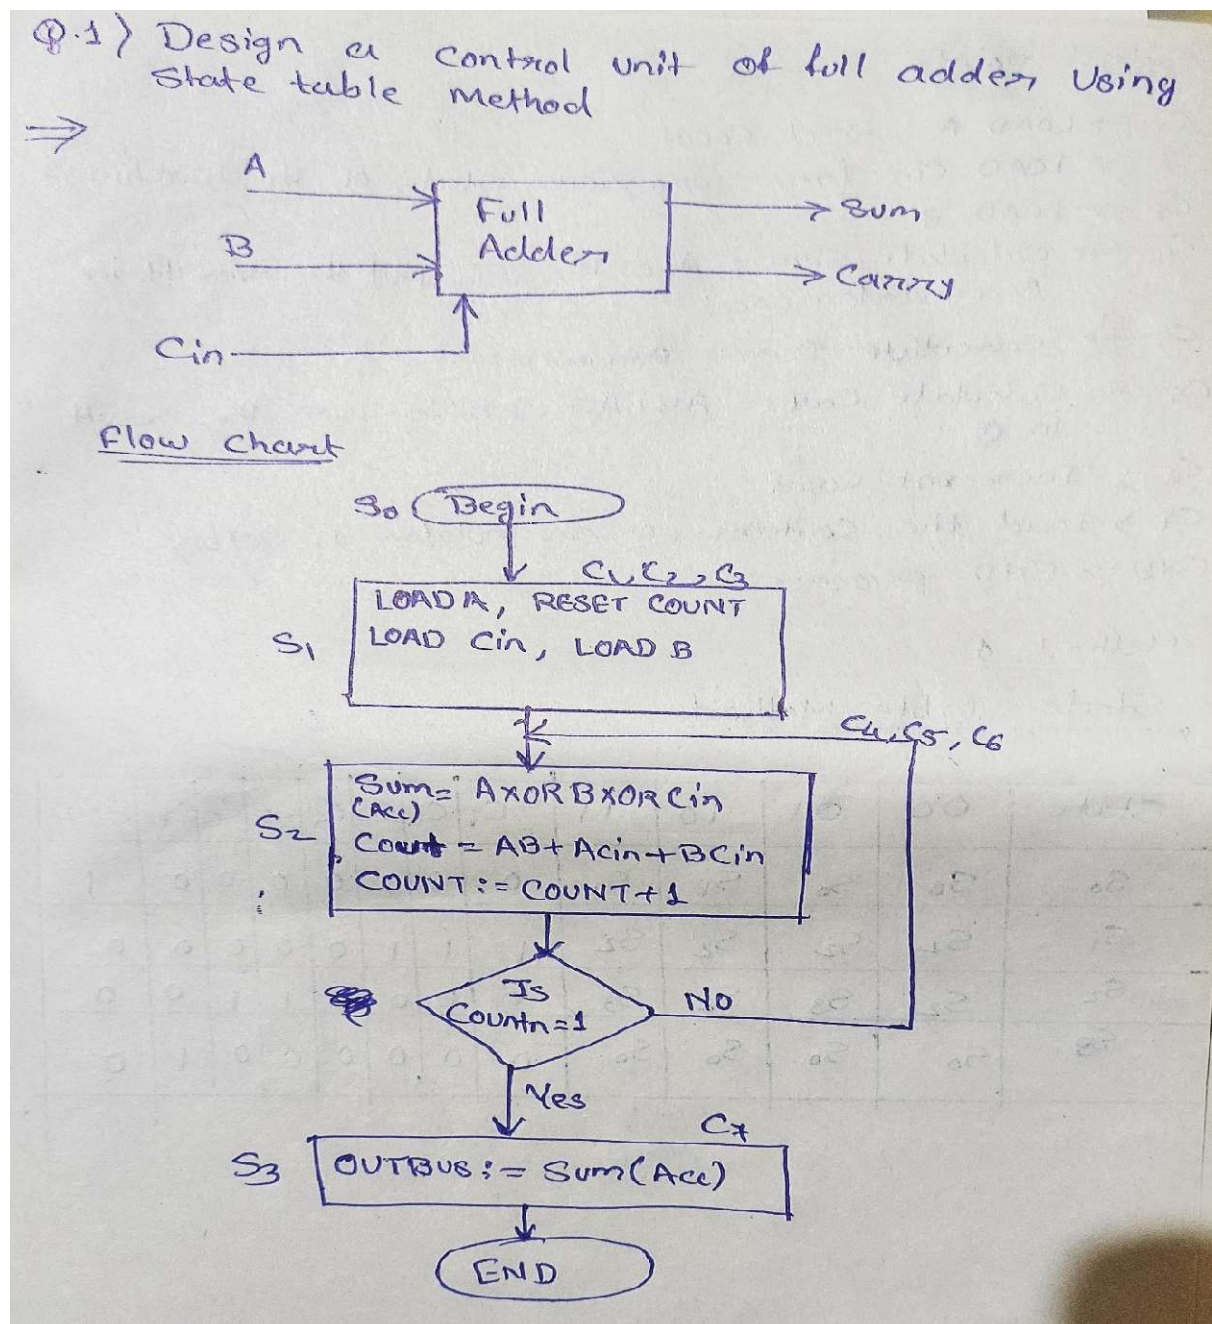 Q.1) Design a control unit of full adder Using
State table Method
⇒
A
B
Cin
Full
Adder
Sum
Carry
Flow Chart
S0 Begin
C1, C2, C3
S1
LOAD A, RESET COUNT
LOAD Cin, LOAD B
C4, C5, C6
S2
Sum = A XOR B XOR Cin
(Acc)
Cout = AB + ACin + BCin
COUNT := COUNT + 1
Is
Countn = 1
NO
Yes
C7
S3
OUTBUS := Sum (Acc)
END